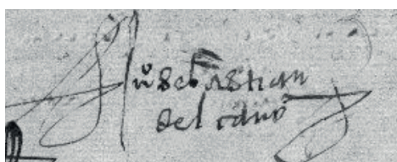 Juº sebastian
del cano